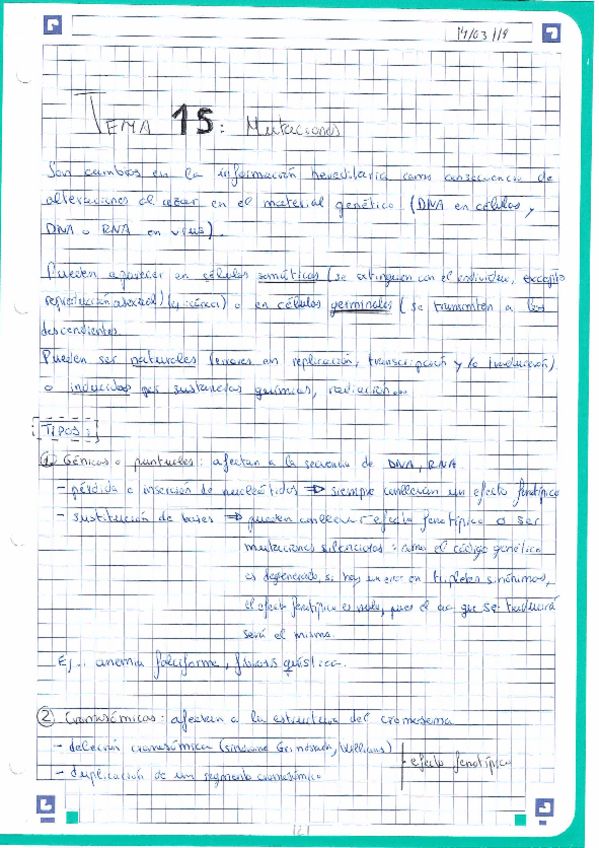 14/03/19
TEMA 15: Mutaciones
Son cambios en la información hereditaria como consecuencia de
alteraciones al azar en el material genético (DNA en células y
DNA o RNA en virus).
Pueden aparecer en células somáticas (se extinguen con el individuo, excepto
reproducción asexual) o en células germinales (se transmiten a los
descendientes
Pueden ser naturales (errores en replicación, transcripción y/o traducción)
o inducidas por sustancias químicas, radiación...
TIPOS:
① Génicas o puntuales: afectan a la secuencia de DNA, RNA.
- pérdida o inserción de nucleótidos ⇒ siempre conllevan un efecto fenotípico
- sustitución de bases ⇒ pueden conllevar efecto fenotípico o ser
mutaciones silenciosas: como el código genético
es degenerado, si hay un error en tripletes sinónimos,
el efecto fenotípico es nulo, pues el aa que se traducirá
será el mismo.
Ej.: anemia falciforme, fibrosis quística.
② Cromosómicas: afectan a la estructura del cromosoma
- deleción cromosómica (síndrome Williams)
- duplicación de un segmento cromosómico
- efecto fenotípico